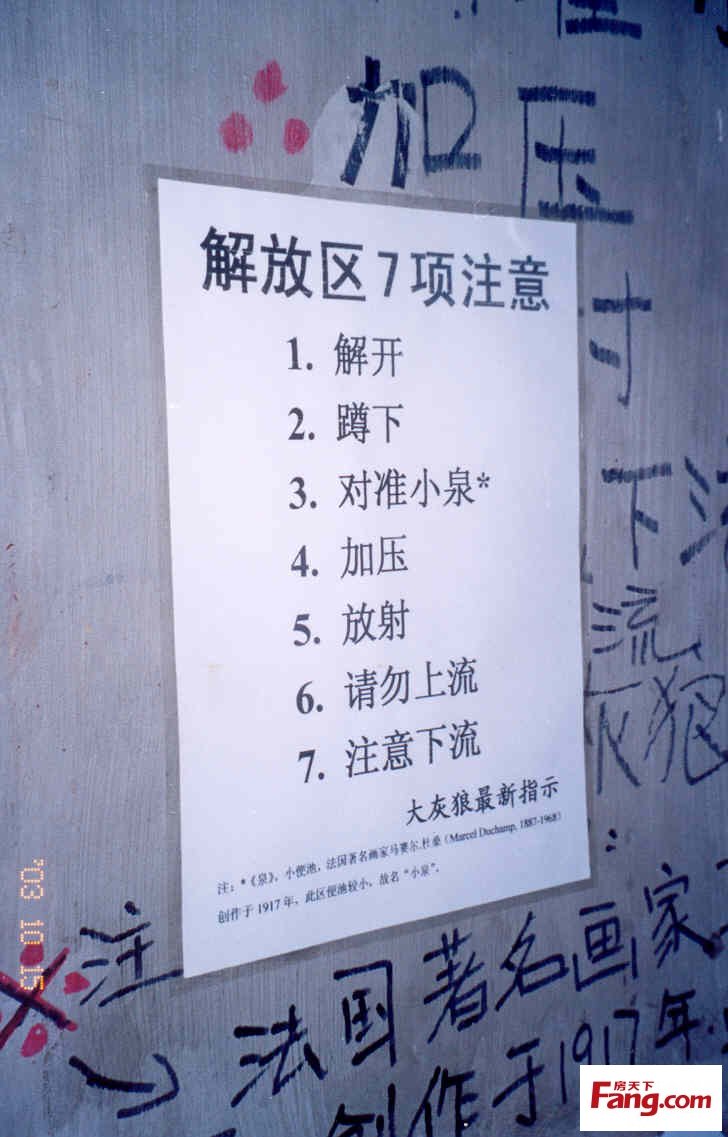 加压
解放区7项注意
1. 解开
2. 蹲下
3. 对准小泉*
4. 加压
5. 放射
6. 请勿上流
7. 注意下流
大灰狼最新指示
注：*《泉》，小便池，法国著名画家马赛尔.杜桑（Marcel Duchamp, 1887-1968）
创作于1917年，此区便池较小，故名“小泉”。
寸
下流
流
灰狼
注
法国著名画家
创作于1917年
'03 10 15
房天下
Fang.com